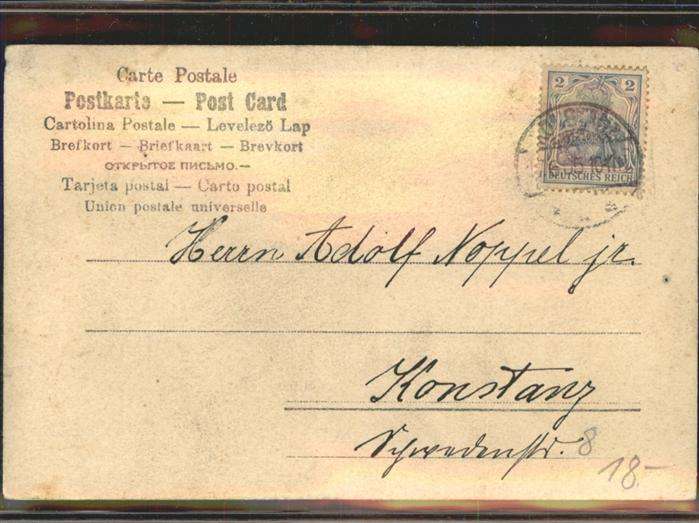 Carte Postale
Postkarte — Post Card
Cartolina Postale — Levelező Lap
Brefkort — Briefkaart — Brevkort
ОТКРЫТОЕ ПИСЬМО.—
Tarjeta postal — Carto postal
Union postale universelle
2 2
DEUTSCHES REICH
Herrn Adolf Noppel jr.
Konstanz
Schwedenstr. 8
18.-